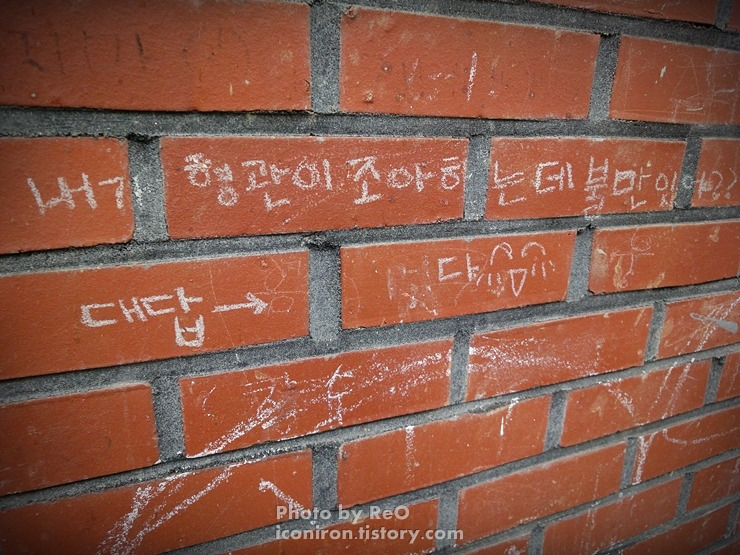 내가 형관이 조아하는데 불만있어??
대답→
다
Photo by ReO
iconiron.tistory.com